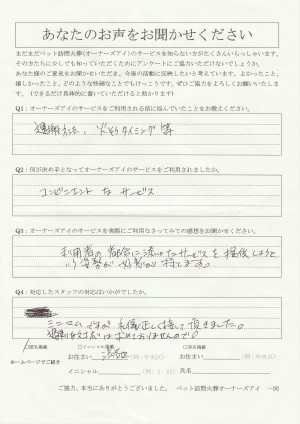 あなたのお声をお聞かせください
まだまだペット訪問火葬(オーナーズアイ)のサービスを知らない方がたくさんいらっしゃいます。
そのかたに少しでも知っていただくためにアンケートにご協力いただけないでしょうか。
あなた様のご意見をお聞かせいただき、今後の活動に反映したいと考えています。よかったこと、
嬉しかったこと、どのような些細なことでもけっこうです。ぜひご協力をよろしくお願いいたします。
(できるだけ具体的に書いていただけると助かります)
Q1:オーナーズアイのサービスをご利用される前に悩んでいたことをお教えください。
タイミング 等
Q2:何が決め手となってオーナーズアイのサービスをご利用されましたか。
コンビニエントな サービス
Q3:オーナーズアイのサービスを実際にご利用なさってみての感想をお聞かせください。
利用者の都合に添ったサービスを提供しようと
いう姿勢が 好感が 持てます。
Q4:対応したスタッフの対応はいかがでしたか。
ミニマムですが 礼儀正しく接して頂きました。
ホームページでご紹介
○イニシャル掲載
お住まい
(例:中央区)
お住まい
(例:中央区)
イニシャル
氏名
ご協力、本当にありがとうございました。 ペット訪問火葬オーナーズアイ 一同